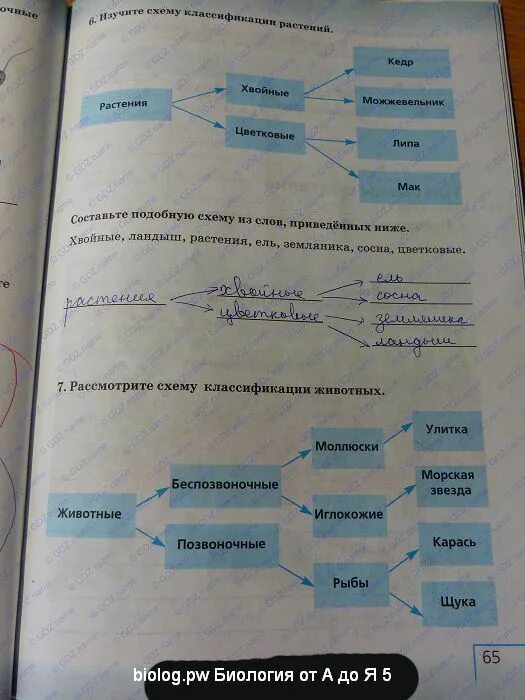 очные
6. Изучите схему классификации растений.
Кедр
Хвойные
Растения
Можжевельник
Цветковые
Липа
Мак
Составьте подобную схему из слов, приведённых ниже.
Хвойные, ландыш, растения, ель, земляника, сосна, цветковые.
те
ель
хвойные
растения
сосна
цветковые
земляника
ландыш
7. Рассмотрите схему классификации животных.
Улитка
Моллюски
Беспозвоночные
Морская
звезда
Животные
Иглокожие
Позвоночные
Карась
Рыбы
Щука
65
biolog.pw Биология от А до Я 5
© GDZ.name